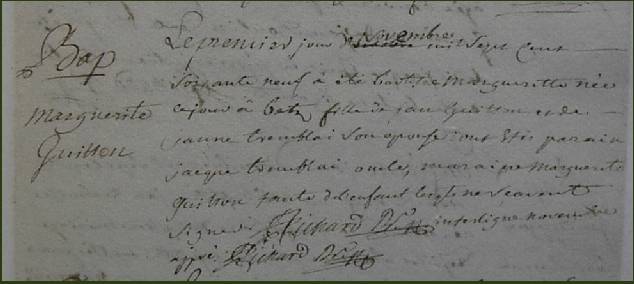 Bap
Marguerite
Guitton
Le premier jour novembre mil sept cent
soixante neuf à été batisée Marguerite née
ce jour à fille de jean Guitton et de
jeanne tremblai son epouse: ont etés parain
jacque tremblai oncle, maraine Marguerite
Guitton tante de l'enfant lesq. ne scavent
signer. Richard Ptre interligne novembre
appr. Richard Ptre